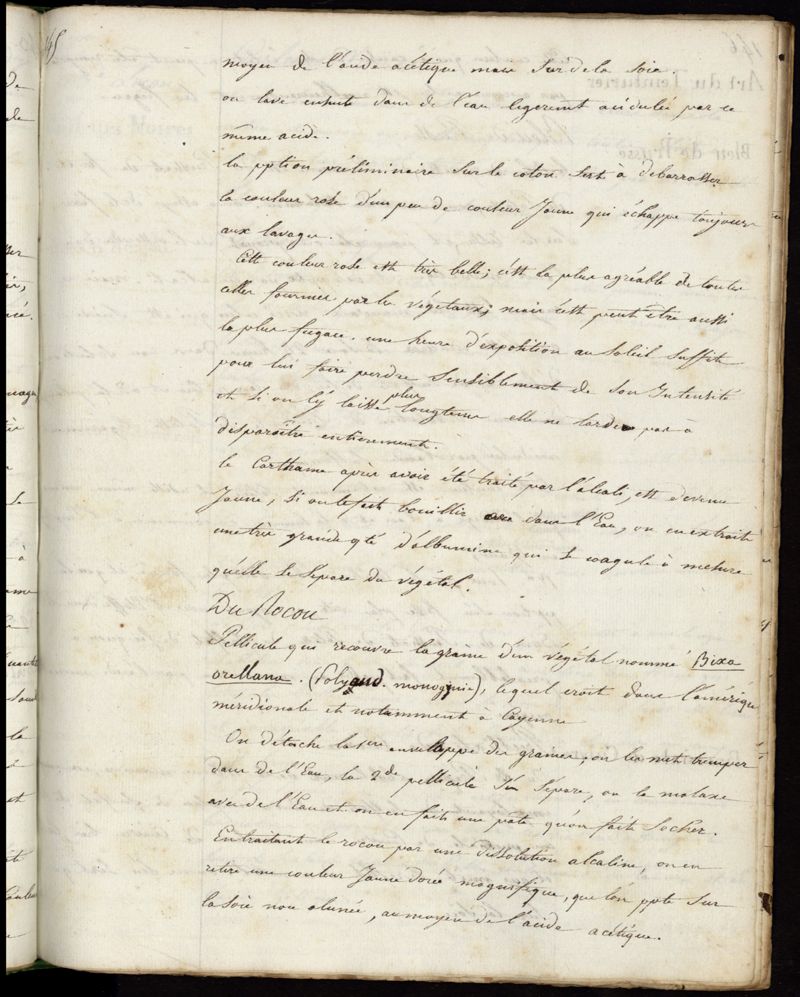 145
moyen de l'acide acétique mais sur de la soie
on lave ensuite dans de l'eau legerement acidulée par ce
même acide.
la pption préliminaire sur le coton sert à debarrasser
la couleur rose d'un peu de couleur Jaune qui échappe toujours
aux lavages.
Cette couleur rose est très belle; c'est la plus agréable de toutes
celles fournies par les végétaux; mais c'est peut être aussi
la plus fugace. une heure d'exposition au soleil suffit
pour lui faire perdre sensiblement de son Intensité
et si on l'y laisse plus longtems elle ne tarde pas à
disparoître entierement.
le Carthame après avoir été traité par l'alcali, est devenu
Jaune, si on le fait bouillir dans l'Eau, on en extrait
une très grande qté d'albumine qui se coagule à mesure
qu'elle se sépare du végétal.
Du Rocou
Pellicule qui recouvre la graine d'un végétal nommé Bixa
orellana. (Polyand. monogynie), lequel croit dans l'amérique
méridionale et notamment à Cayenne
On détache la 1ere enveloppe des graines, on les met tremper
dans de l'Eau, la 2de pellicule s'en sépare, on la malaxe
avec de l'Eau et on en fait une pâte qu'on fait secher.
En traitant le rocou par une dissolution alcaline, on en
retire une couleur Jaune dorée magnifique, que l'on ppte sur
la soie non alunée, au moyen de l'acide acétique.